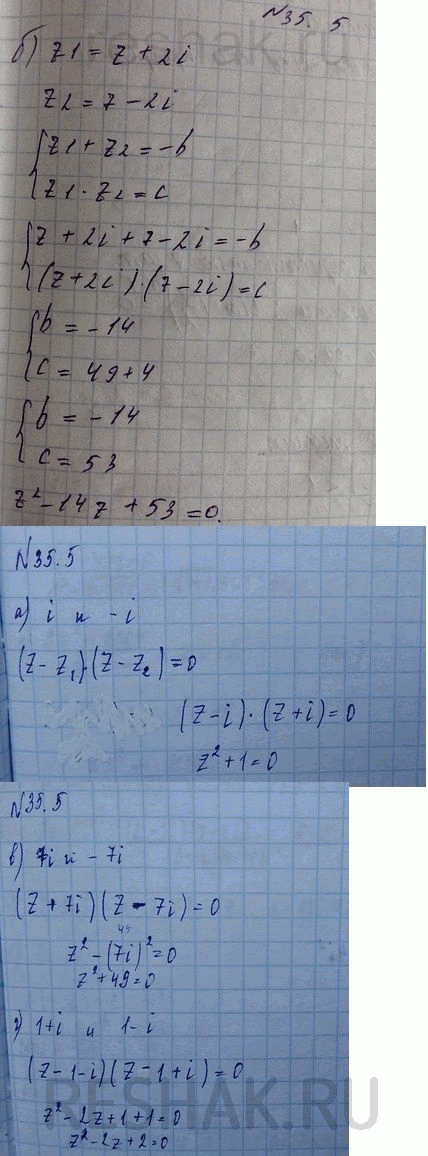 N35. 5
б) z1 = 7 + 2i
z2 = 7 - 2i
z1 + z2 = -b
z1 · z2 = c
7 + 2i + 7 - 2i = -b
(7+2i)·(7-2i) = c
b = -14
c = 49+4
b = -14
c = 53
z² - 14z + 53 = 0.
N35.5
а) i и -i
(z - z₁)·(z - z₂) = 0
(z - i)·(z + i) = 0
z² + 1 = 0
N35.5
в) 7i и - 7i
(z + 7i)(z - 7i) = 0
49
z² - (7i)² = 0
z² + 49 = 0
г) 1+i и 1- i
(z - 1 - i)(z - 1 + i) = 0
z² - 2z + 1 + 1 = 0
z² - 2z + 2 = 0
RESHAK.RU